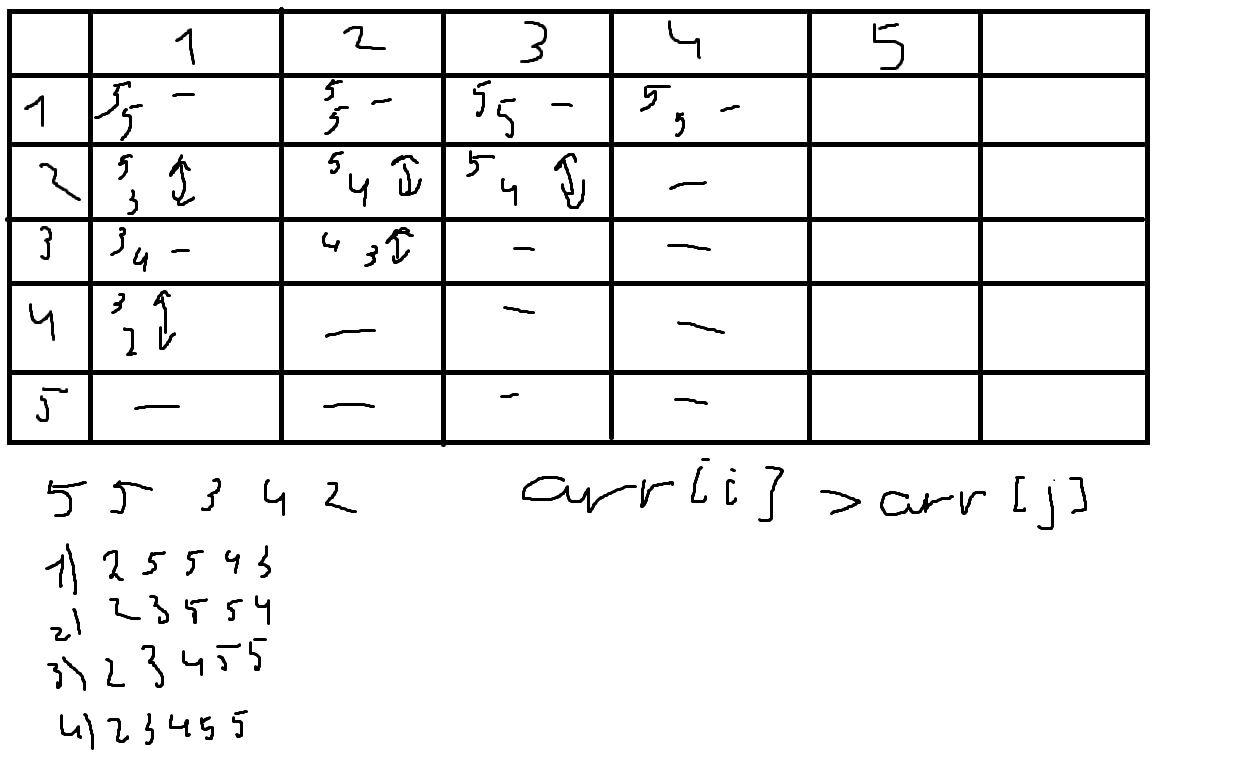 1 2 3 4 5
1 5 5 – 5 5 – 5 5 – 5 5 –
2 5 3 ↕ 5 4 ↕ 5 4 ↕ –
3 3 4 – 4 3 ↕ – –
4 3 2 ↕ – – –
5 – – – –
5 5 3 4 2 arr[i] > arr[j]
1) 2 5 5 4 3
2) 2 3 5 5 4
3) 2 3 4 5 5
4) 2 3 4 5 5